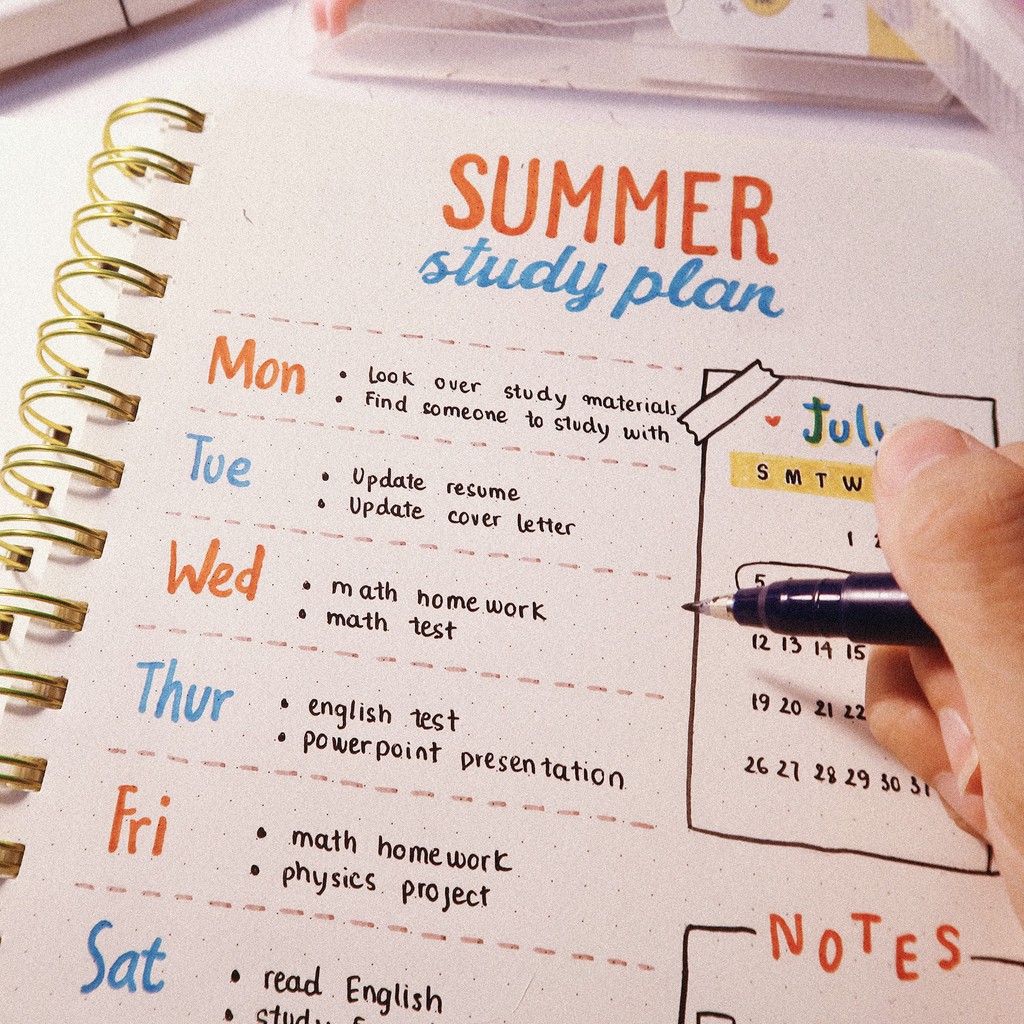 SUMMER
study plan
Mon
• Look over study materials
• Find someone to study with
Tue
• Update resume
• Update cover letter
Wed
• math homework
• math test
Thur
• english test
• powerpoint presentation
Fri
• math homework
• physics project
Sat
• read English
• study
July
S M T W
1
5
12 13 14 15
19 20 21 22
26 27 28 29 30 31
NOTES